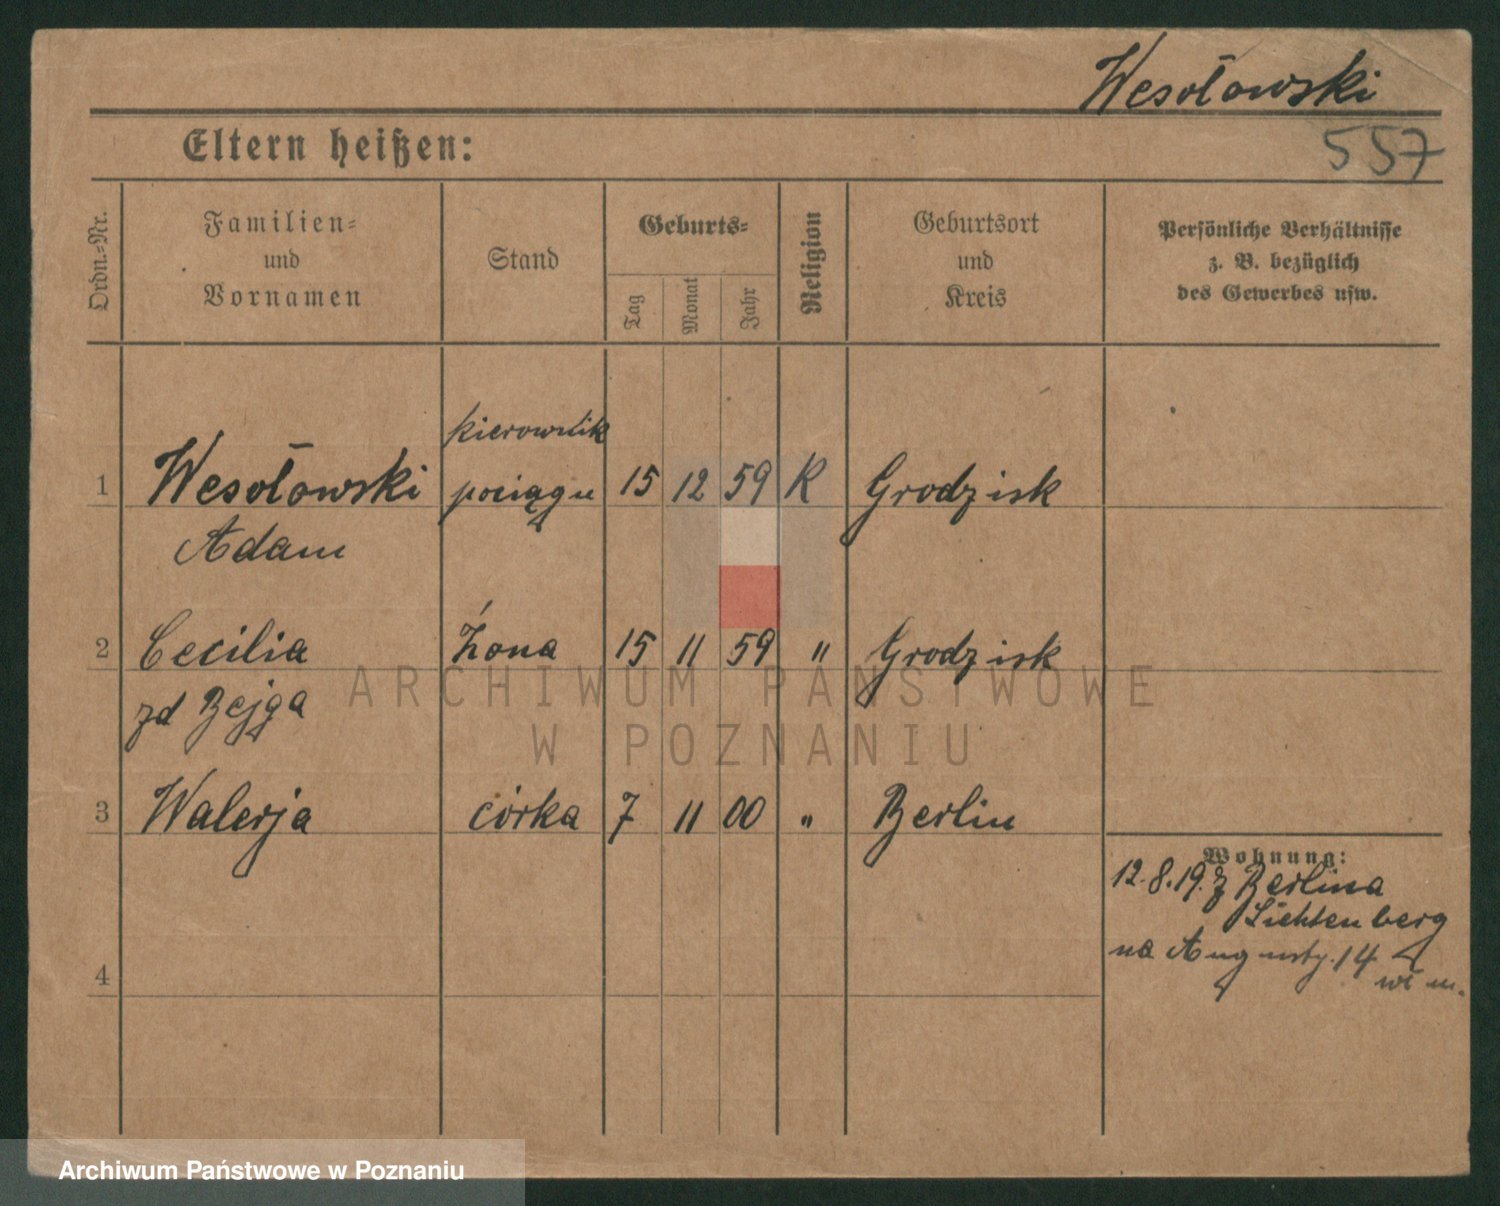 Wesołowski
557
Eltern heißen:
Ordn.-Nr.
Familien-
und
Vornamen
Stand
Geburts-
Tag
Monat
Jahr
Religion
Geburtsort
und
Kreis
Persönliche Verhältnisse
z. B. bezüglich
des Gewerbes usw.
kierownik
1 Wesołowski pociągu 15 12 59 K Grodzisk
Adam
2 Cecilia żona 15 11 59 " Grodzisk
zd Bejga
3 Walerja córka 7 11 00 " Berlin
Wohnung:
12.8.19. z Berlina
Lichtenberg
na Augusty. 14
wł m.
4
ARCHIWUM PAŃSTWOWE
W POZNANIU
Archiwum Państwowe w Poznaniu